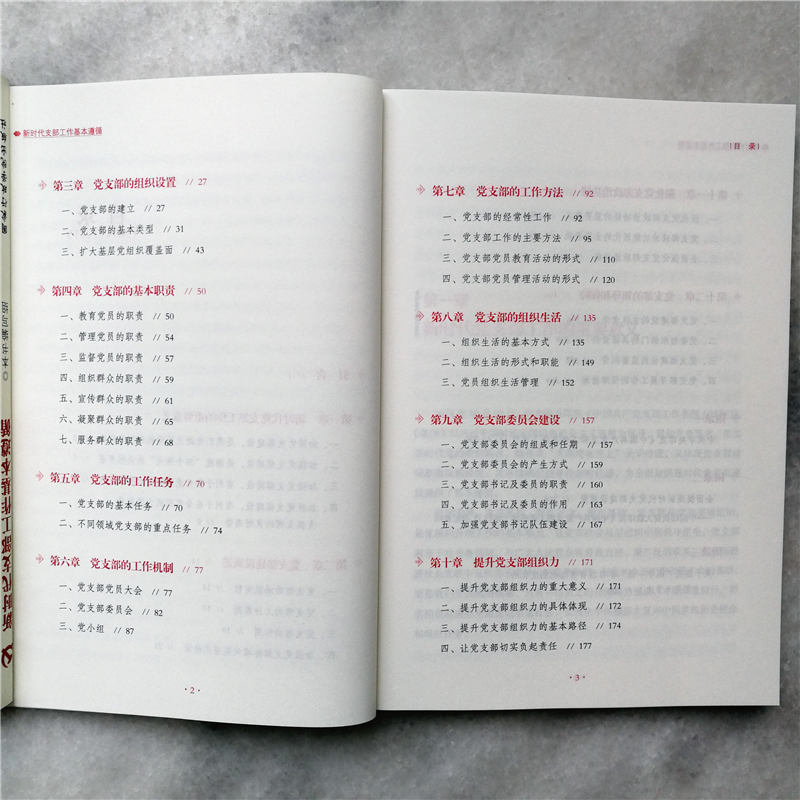 新时代支部工作基本遵循
第三章 党支部的组织设置 // 27
一、党支部的建立 // 27
二、党支部的基本类型 // 31
三、扩大基层党组织覆盖面 // 43
第四章 党支部的基本职责 // 50
一、教育党员的职责 // 50
二、管理党员的职责 // 54
三、监督党员的职责 // 57
四、组织群众的职责 // 59
五、宣传群众的职责 // 61
六、凝聚群众的职责 // 65
七、服务群众的职责 // 68
第五章 党支部的工作任务 // 70
一、党支部的基本任务 // 70
二、不同领域党支部的重点任务 // 74
第六章 党支部的工作机制 // 77
一、党支部党员大会 // 77
二、党支部委员会 // 82
三、党小组 // 87
· 2 ·
目 录
第七章 党支部的工作方法 // 92
一、党支部的经常性工作 // 92
二、党支部工作的主要方法 // 95
三、党支部党员教育活动的形式 // 110
四、党支部党员管理活动的形式 // 120
第八章 党支部的组织生活 // 135
一、组织生活的基本方式 // 135
二、组织生活的形式和职能 // 149
三、党员组织生活管理 // 152
第九章 党支部委员会建设 // 157
一、党支部委员会的组成和任期 // 157
二、党支部委员会的产生方式 // 159
三、党支部书记及委员的职责 // 160
四、党支部书记及委员的作用 // 163
五、加强党支部书记队伍建设 // 167
第十章 提升党支部组织力 // 171
一、提升党支部组织力的重大意义 // 171
二、提升党支部组织力的具体体现 // 172
三、提升党支部组织力的基本路径 // 174
四、让党支部切实负起责任 // 177
· 3 ·
新时代支部工作基本遵循
本书编写组